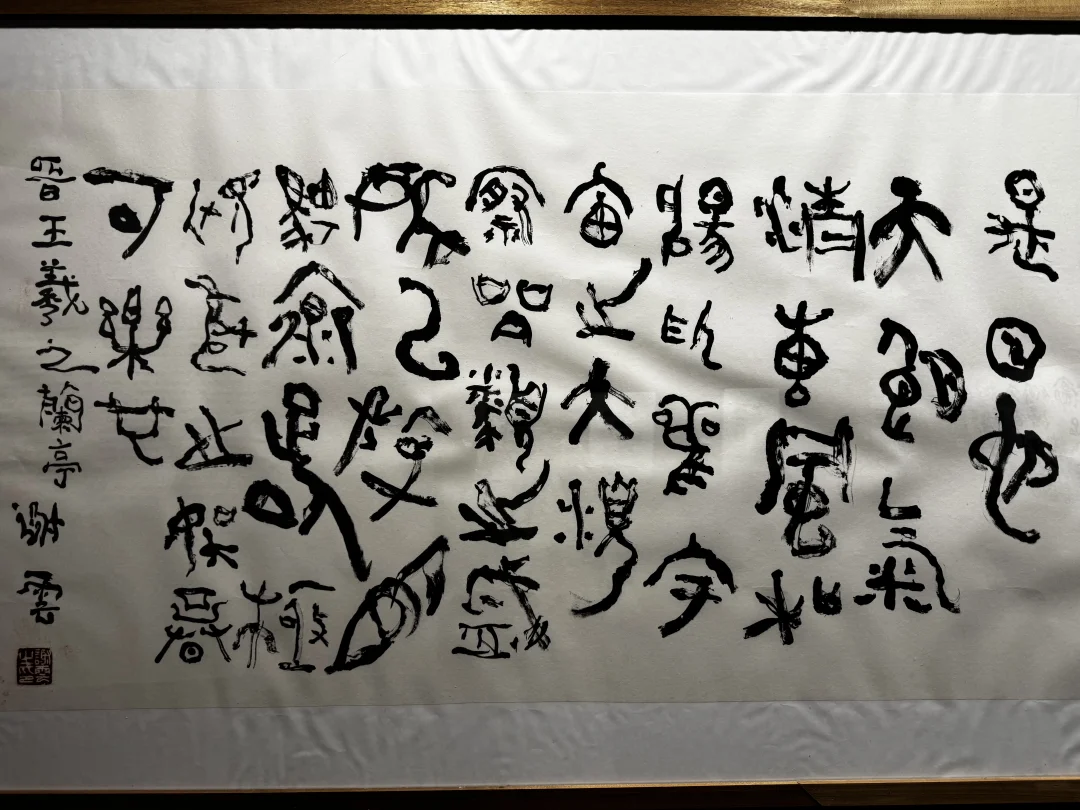 是日也
天朗氣
清惠風和
暢仰觀宇
宙之大俯
察品類之盛
所以游目
騁懷足以極
視聽之娛信
可樂也
晉王羲之蘭亭 謝雲